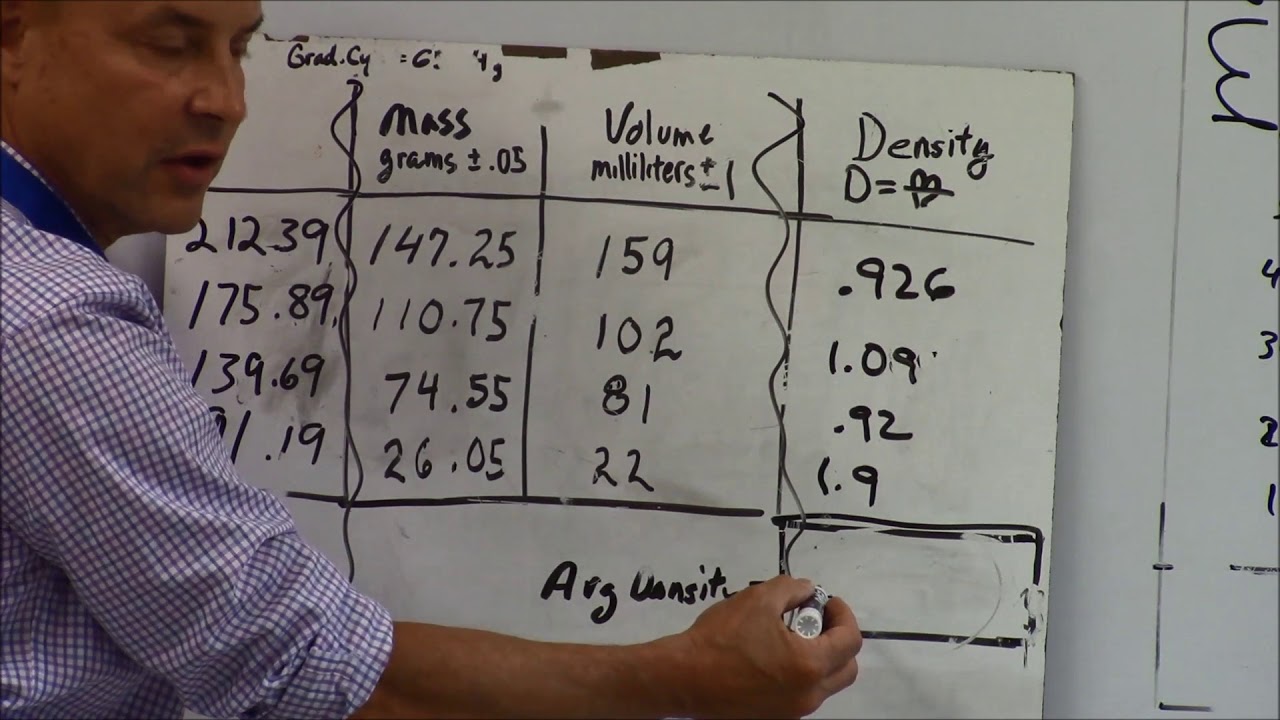 Grad.Cy = 6
Mass
grams ± .05
Volume
milliliters ± 1
Density
D = m/v
212.39 147.25 159 .926
175.89 110.75 102 1.09
139.69 74.55 81 .92
1.19 26.05 22 1.9
Avg Density =
4
3
2
1